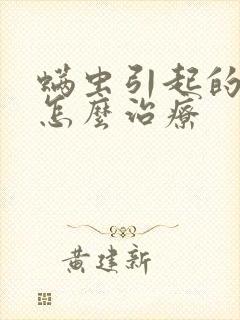 螨虫引起的
怎麼治療
黄建新